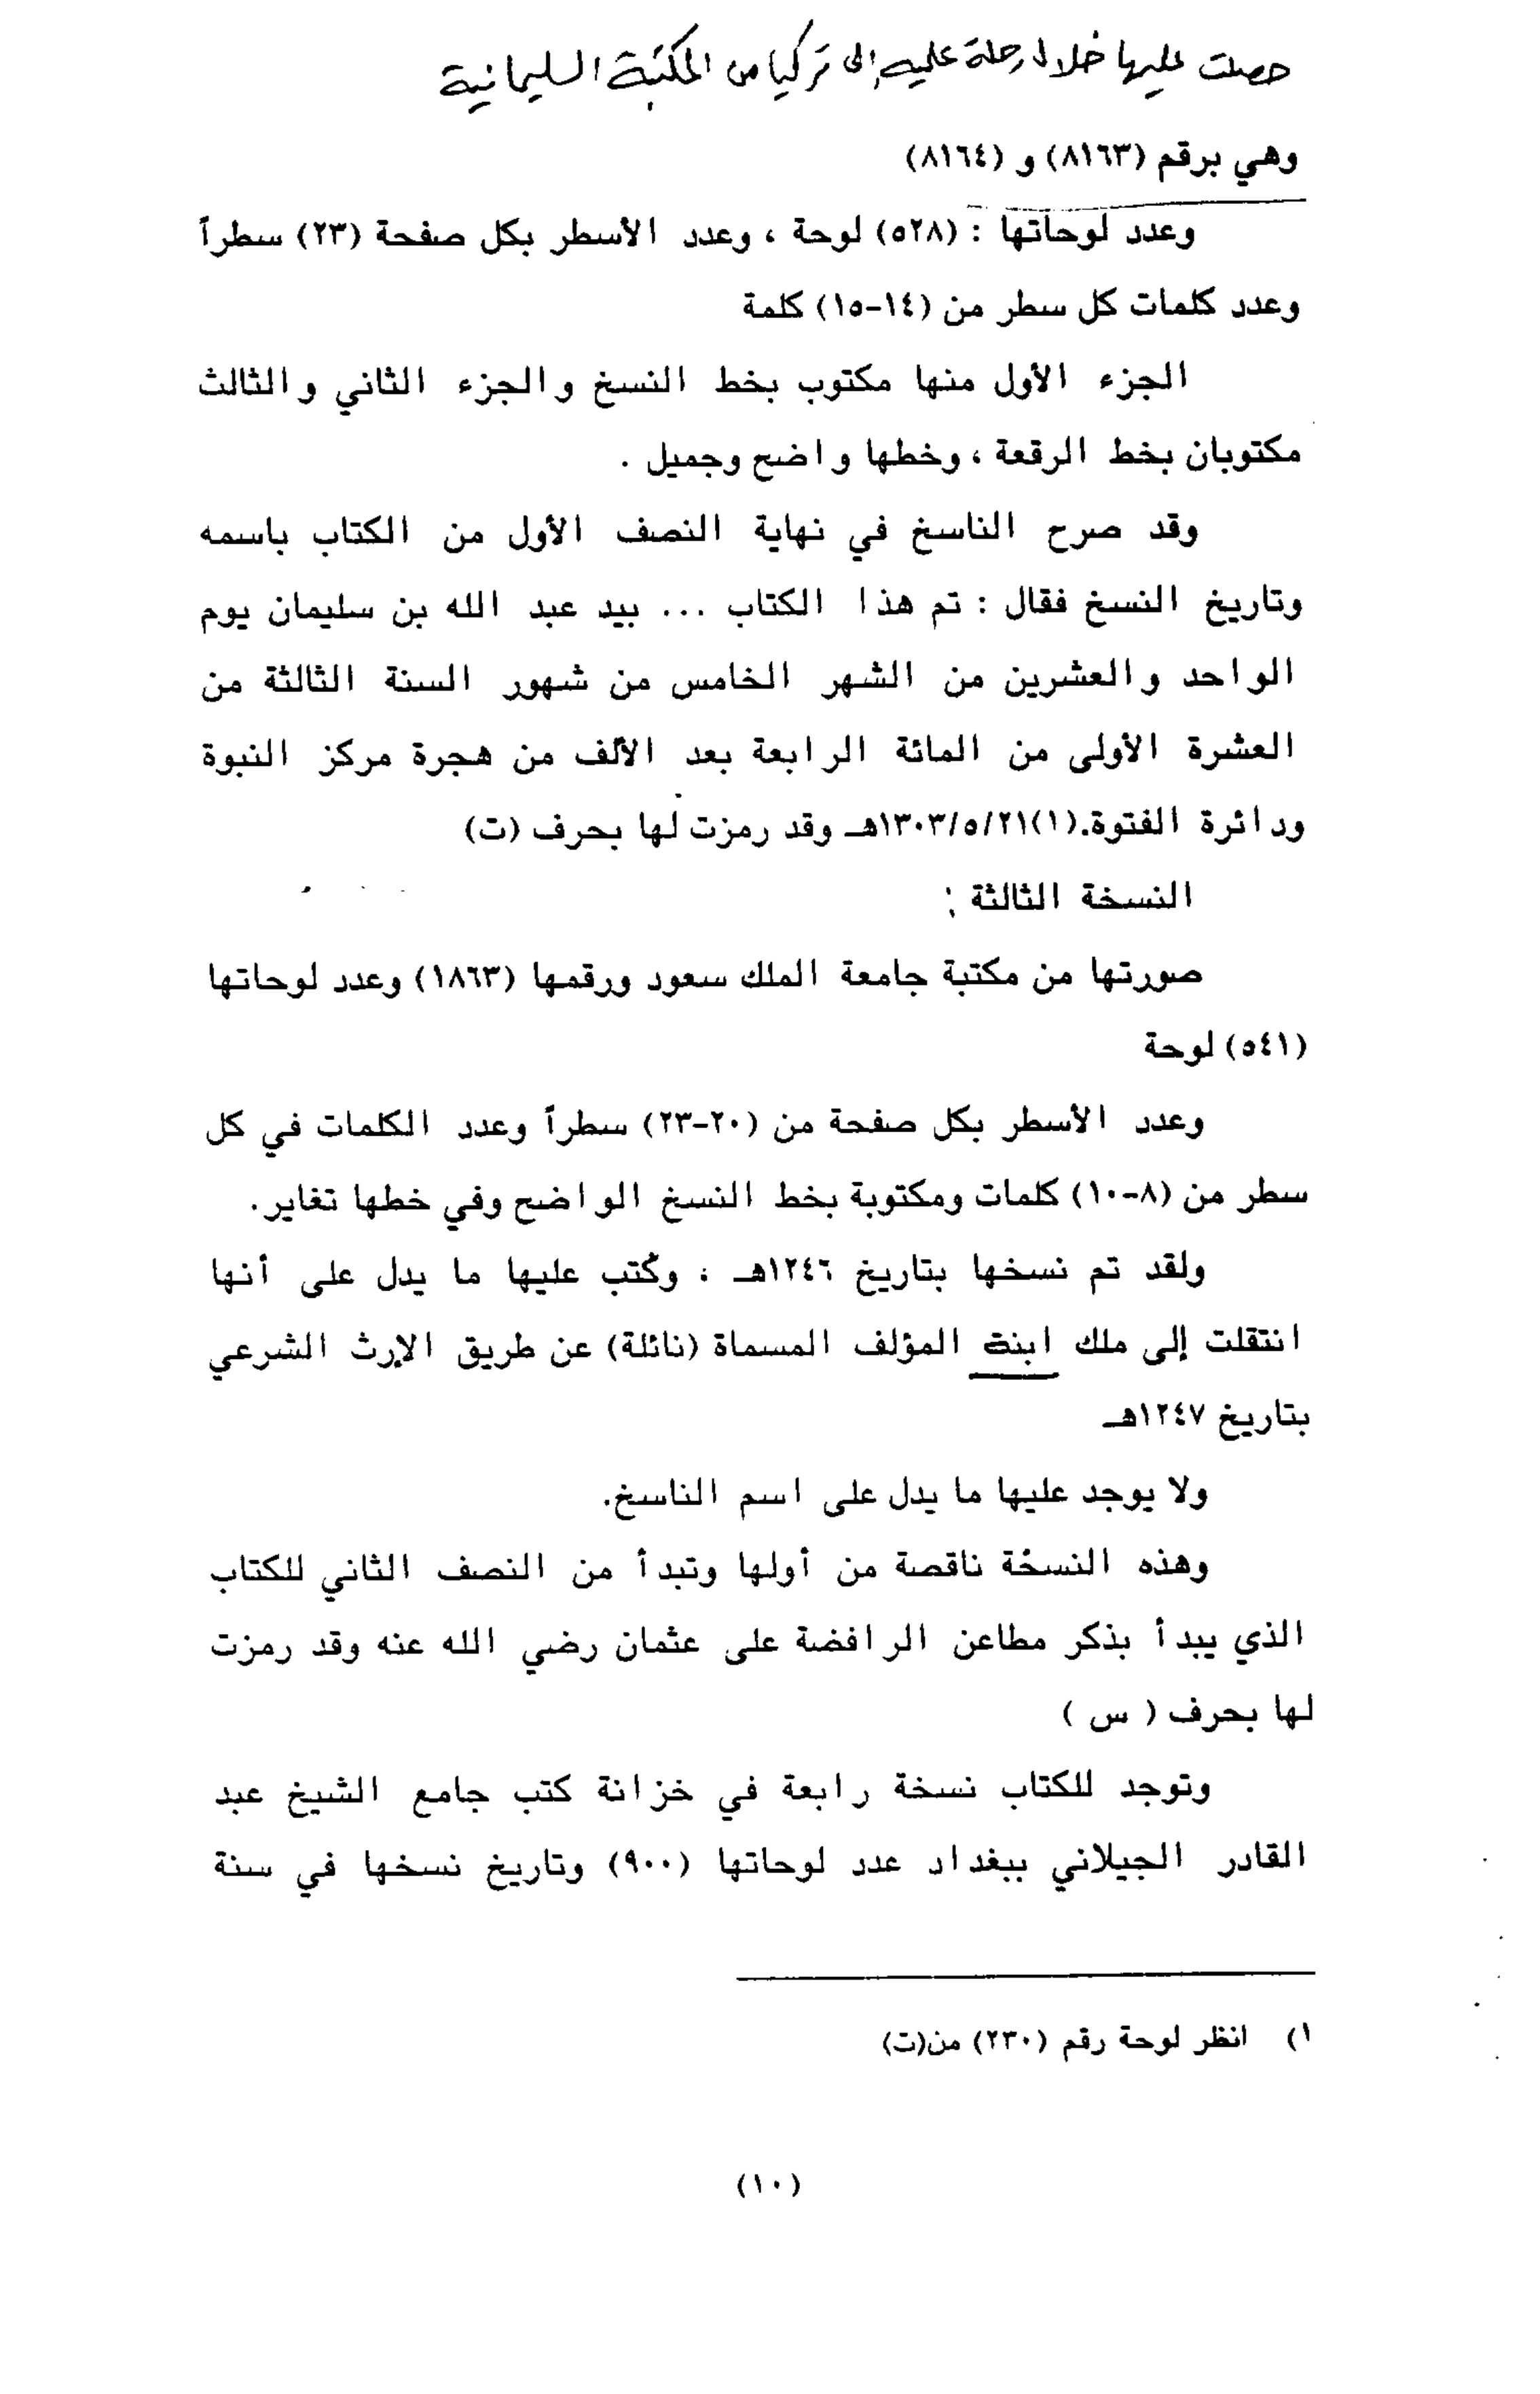 حصلت عليها خلال رحلة علمية إلى تركيا من المكتبة السليمانية
وهي برقم (٨١٦٣) و (٨١٦٤)
وعدد لوحاتها : (٥٢٨) لوحة ، وعدد الأسطر بكل صفحة (٢٣) سطراً
وعدد كلمات كل سطر من (١٤-١٥) كلمة
الجزء الأول منها مكتوب بخط النسخ والجزء الثاني والثالث
مكتوبان بخط الرقعة ، وخطها واضح وجميل .
وقد صرح الناسخ في نهاية النصف الأول من الكتاب باسمه
وتاريخ النسخ فقال : تم هذا الكتاب ... بيد عبد الله بن سليمان يوم
الواحد والعشرين من الشهر الخامس من شهور السنة الثالثة من
العشرة الأولى من المائة الرابعة بعد الألف من هجرة مركز النبوة
ودائرة الفتوة.(١)١٣٠٣/٥/٢١هـ وقد رمزت لها بحرف (ت)
النسخة الثالثة :
صورتها من مكتبة جامعة الملك سعود ورقمها (١٨٦٣) وعدد لوحاتها
(٥٤١) لوحة
وعدد الأسطر بكل صفحة من (٢٠-٢٣) سطراً وعدد الكلمات في كل
سطر من (٨-١٠) كلمات ومكتوبة بخط النسخ الواضح وفي خطها تغاير.
ولقد تم نسخها بتاريخ ١٢٤٦هـ ، وكتب عليها ما يدل على أنها
انتقلت إلى ملك ابنة المؤلف المسماة (نائلة) عن طريق الإرث الشرعي
بتاريخ ١٢٤٧هـ
ولا يوجد عليها ما يدل على اسم الناسخ.
وهذه النسخة ناقصة من أولها وتبدأ من النصف الثاني للكتاب
الذي يبدأ بذكر مطاعن الرافضة على عثمان رضي الله عنه وقد رمزت
لها بحرف ( س )
وتوجد للكتاب نسخة رابعة في خزانة كتب جامع الشيخ عبد
القادر الجيلاني ببغداد عدد لوحاتها (٩٠٠) وتاريخ نسخها في سنة
١) انظر لوحة رقم (٢٣٠) من(ت)
(١٠)